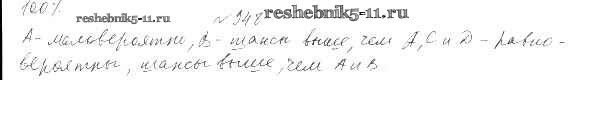 100%
reshebnik5-11.ru № 948 reshebnik5-11.ru
А - маловероятно, В - шансы выше, чем А, С и D - равно-
вероятны, шансы выше, чем А и В.